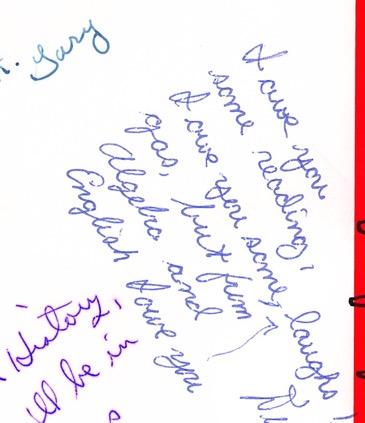 Gary
I owe you
some reading,
I owe you some, laughs!
gas, but fun
Algebra and
English I owe you
History,
ll be in